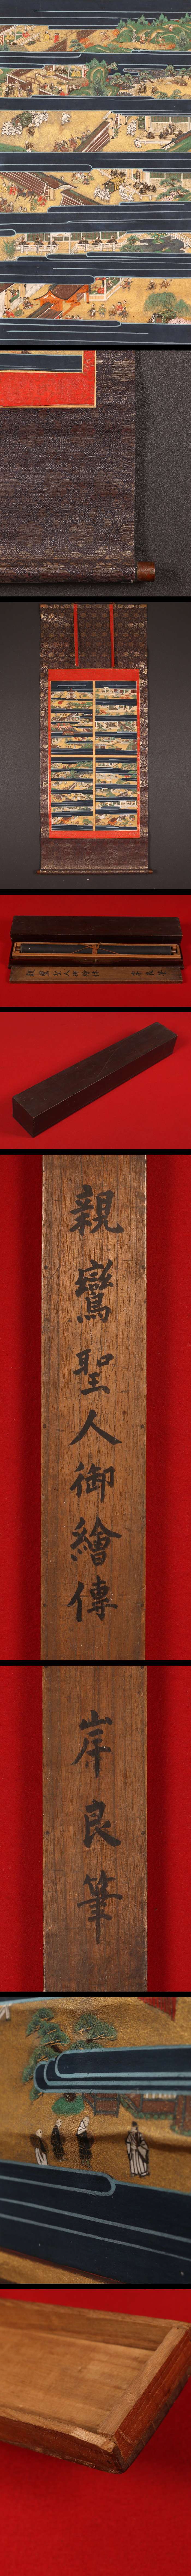 親鸞聖人御繪傳
岸良筆